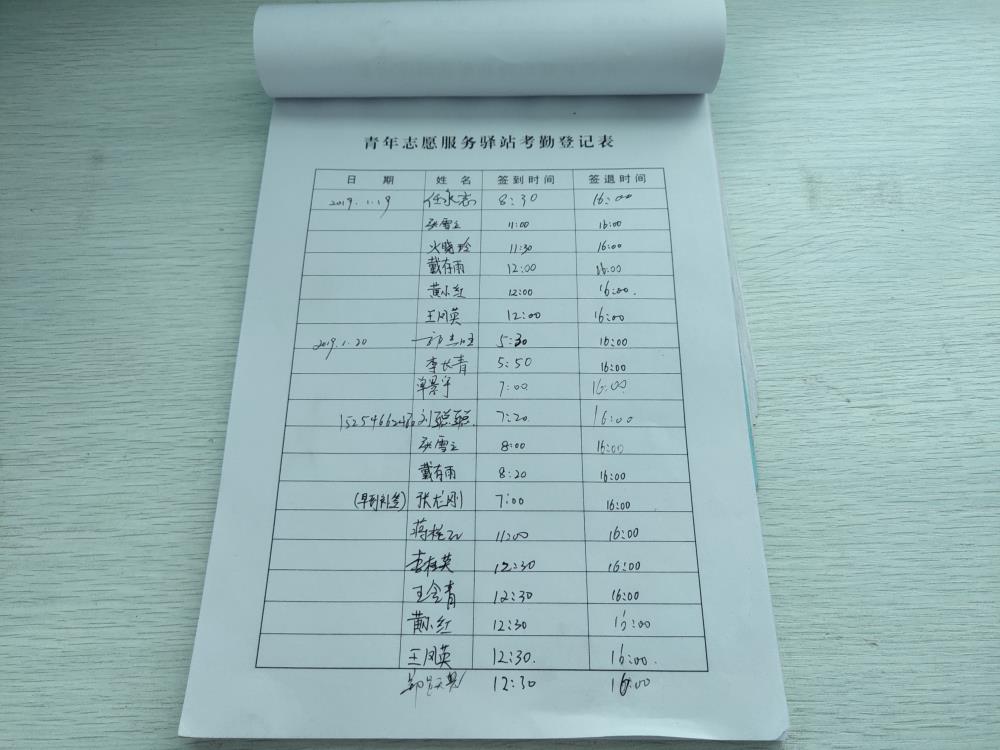 青年志愿服务驿站考勤登记表
日 期 姓 名 签到时间 签退时间
2019.1.19 任永志 8:30 16:00
张雪 11:00 16:00
火晓玲 11:30 16:00
戴存雨 12:00 16:00
黄小红 12:00 16:00.
王凤英 12:00 16:00
2019.1.20 5:30 16:00
李长青 5:50 16:00
7:00 16:00
刘聪聪. 7:20. 16:00
张雪 8:00 16:00
戴有雨 8:20 16:00
(早到补签) 张龙刚 7:00 16:00
蒋 11:00 16:00
李桂英 12:30 16:00
王会青 12:30 16:00
黄小红 12:30 16:00
王凤英 12:30. 16:00.
12:30 16:00